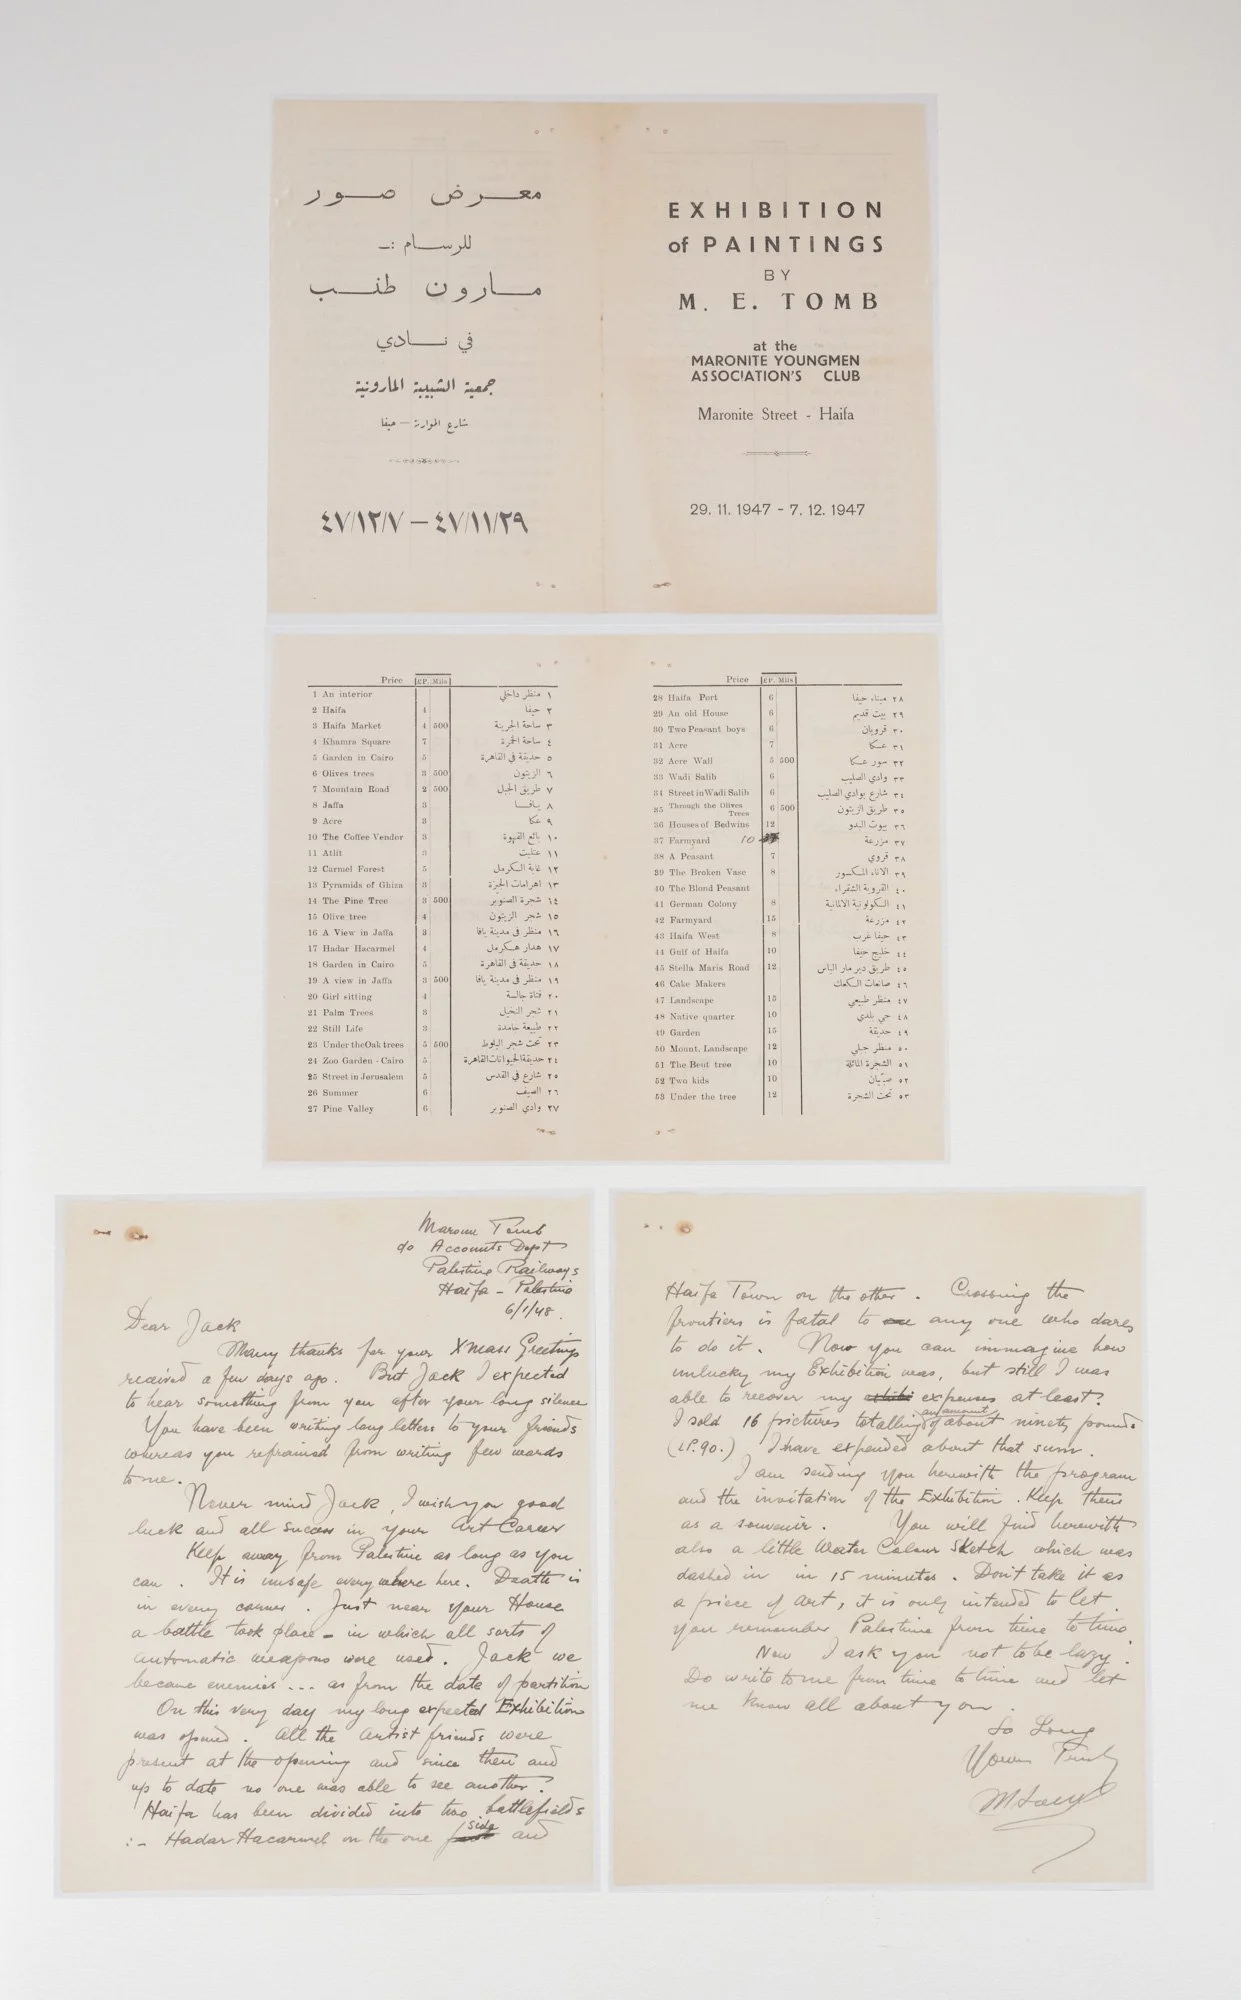 معرض صور
للرسام :ـ
مارون طنب
في نادي
جمعية الشبيبة المارونية
شارع الموارنة — حيفا
٤٧/١١/٢٩ — ٤٧/١٢/٧
EXHIBITION
of PAINTINGS
BY
M. E. TOMB
at the
MARONITE YOUNGMEN
ASSOCIATION'S CLUB
Maronite Street - Haifa
29. 11. 1947 - 7. 12. 1947
Price £P. Mils
1 An interior ١ منظر داخلي
2 Haifa 4 ٢ حيفا
3 Haifa Market 4 500 ٣ ساحة الجرينة
4 Khamra Square 7 ٤ ساحة الخمرة
5 Garden in Cairo 5 ٥ حديقة في القاهرة
6 Olives trees 3 500 ٦ الزيتون
7 Mountain Road 2 500 ٧ طريق الجبل
8 Jaffa 3 ٨ يافا
9 Acre 3 ٩ عكا
10 The Coffee Vendor 3 ١٠ بائع القهوة
11 Atlit 3 ١١ عتليت
12 Carmel Forest 5 ١٢ غابة الكرمل
13 Pyramids of Ghiza 3 ١٣ اهرامات الجيزة
14 The Pine Tree 3 500 ١٤ شجرة الصنوبر
15 Olive tree 4 ١٥ شجر الزيتون
16 A View in Jaffa 3 ١٦ منظر في مدينة يافا
17 Hadar Hacarmel 4 ١٧ هدار هكرمل
18 Garden in Cairo 5 ١٨ حديقة في القاهرة
19 A view in Jaffa 3 500 ١٩ منظر في مدينة يافا
20 Girl sitting 4 ٢٠ فتاة جالسة
21 Palm Trees 3 ٢١ شجر النخيل
22 Still Life 3 ٢٢ طبيعة جامدة
23 Under the Oak trees 5 500 ٢٣ تحت شجر البلوط
24 Zoo Garden - Cairo 5 ٢٤ حديقة الحيوانات القاهرة
25 Street in Jerusalem 5 ٢٥ شارع في القدس
26 Summer 6 ٢٦ الصيف
27 Pine Valley 6 ٢٧ وادي الصنوبر
Price £P. Mils
28 Haifa Port 6 ٢٨ ميناء حيفا
29 An old House 6 ٢٩ بيت قديم
30 Two Peasant boys 6 ٣٠ قرويان
31 Acre 7 ٣١ عكا
32 Acre Wall 5 500 ٣٢ سور عكا
33 Wadi Salib 6 ٣٣ وادي الصليب
34 Street in Wadi Salib 6 ٣٤ شارع بوادي الصليب
35 Through the Olives Trees 6 500 ٣٥ طريق الزيتون
36 Houses of Bedwins 12 ٣٦ بيوت البدو
37 Farmyard 10 ٣٧ مزرعة
38 A Peasant 7 ٣٨ قروي
39 The Broken Vase 8 ٣٩ الاناء المكسور
40 The Blond Peasant ٤٠ القروية الشقراء
41 German Colony 8 ٤١ الكولونية الالمانية
42 Farmyard 15 ٤٢ مزرعة
43 Haifa West 8 ٤٣ حيفا غرب
44 Gulf of Haifa 10 ٤٤ خليج حيفا
45 Stella Maris Road 12 ٤٥ طريق دير مار الياس
46 Cake Makers ٤٦ صانعات الكعك
47 Landscape 15 ٤٧ منظر طبيعي
48 Native quarter 10 ٤٨ حي بلدي
49 Garden 15 ٤٩ حديقة
50 Mount. Landscape 12 ٥٠ منظر جبلي
51 The Bent tree 10 ٥١ الشجرة المائلة
52 Two kids 10 ٥٢ صبيان
53 Under the tree 12 ٥٣ تحت الشجرة
Maroun Tomb
c/o Accounts Dept
Palestine Railways
Haifa - Palestine
6/1/48.
Dear Jack
Many thanks for your Xmass Greetings
received a few days ago. But Jack I expected
to hear something from you after your long silence
You have been writing long letters to your friends
whereas you refrained from writing few words
to me.
Never mind Jack, I wish you good
luck and all success in your Art Career
Keep away from Palestine as long as you
can. It is unsafe everywhere here. Death is
in every corner. Just near your House
a battle took place - in which all sorts of
automatic weapons were used. Jack we
became enemies ... as from the date of partition
On this very day my long expected Exhibition
was opened. All the artist friends were
present at the opening and since then and
up to date no one was able to see another.
Haifa has been divided into two battlefields
:- Hadar Hacarmel on the one side and
Haifa Town on the other. Crossing the
frontiers is fatal to any one who dares
to do it. Now you can immagine how
unlucky my Exhibition was, but still I was
able to recover my expenses at least.
I sold 16 pictures totalling an amount of about ninety pounds
(LP.90.) I have expended about that sum.
I am sending you herewith the program
and the invitation of the Exhibition. Keep them
as a souvenir. You will find herewith
also a little Water Colour Sketch which was
dashed in in 15 minutes. Don't take it as
a piece of art, it is only intended to let
you remember Palestine from time to time
Now I ask you not to be lazy.
Do write to me from time to time and let
me know all about you.
So Long
Yours Truly